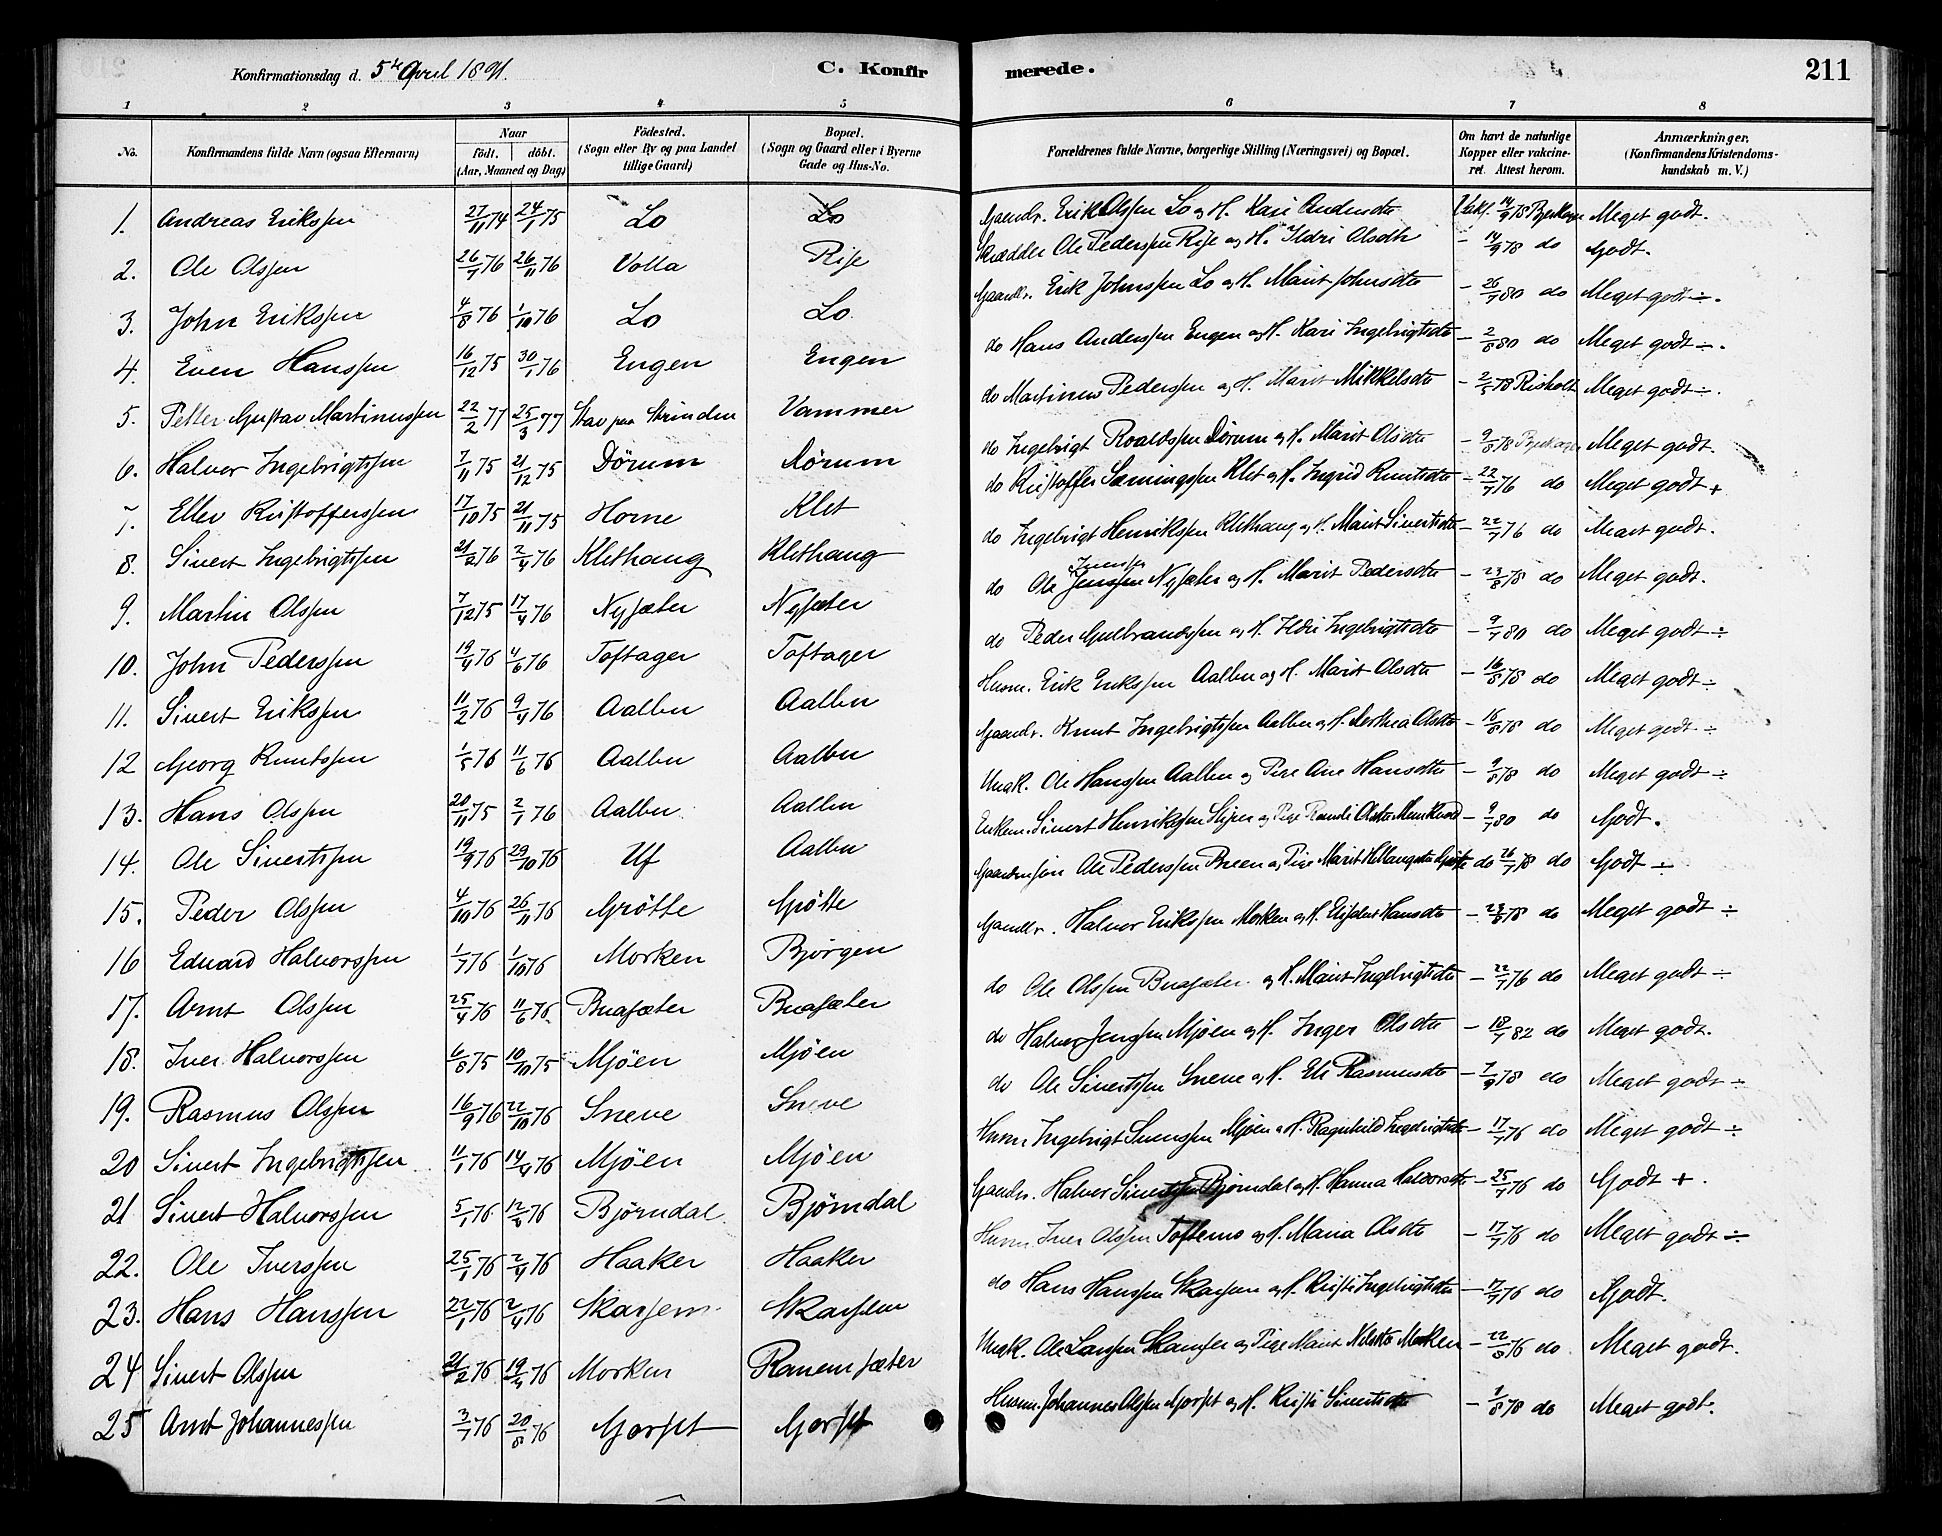 Konfirmationsdag d. 5te April 1891. C. Konfirmerede. 211
1 2 3 4 5 6 7 8
No. Konfirmandens fulde Navn (ogsaa Efternavn) Naar födt. döbt. (Aar, Maaned og Dag) Födested. (Sogn eller By og paa Landet tillige Gaard) Bopæl. (Sogn og Gaard eller i Byerne Gade og Hus-No. Forældrenes fulde Navne, borgerlige Stilling (Næringsvei) og Bopæl. Om havt de naturlige Kopper eller vakcineret. Attest herom. Anmærkninger. (Konfirmandens Kristendomskundskab m. V.)
1. Andreas Erikssen 27/11 74 24/1 75 Lo Lo Gaardbr. Erik Olssen Lo og H. Kari Andersdtr Vakc. 14/9 78 Meget godt.
2. Ole Olssen 26/7 76 26/11 76 Volla Rise Skrædder Ole Pederssen Rise og H. Ildri Olsdtr - 14/9 78 do Godt.
3. John Erikssen 4/8 76 1/10 76 Lo Lo Gaardbr. Erik Johnssen Lo og H. Marit Johnsdtr - 26/7 80 do Meget godt ÷.
4. Even Hanssen 16/12 75 30/1 76 Engen Engen do Hans Anderssen Engen og H. Kari Ingebrigtsdtr - 2/8 80 do Meget godt ÷.
5. Petter Gustav Martinussen 22/2 77 25/3 77 Stav paa Strinden Vammer do Martinus Pederssen og H. Marit Mikkelsdtr - 2/5 78 Risholt Meget godt ÷.
6. Halvor Ingebrigtssen 7/11 75 21/12 75 Dörum Dörum do Ingebrigt Roaldssen Dörum og H. Marit Olsdtr - 9/8 78 Meget godt.
7. Ellev Kristofferssen 17/10 75 21/11 75 Horne Klet do Kristoffer Sæmingssen Klet og H. Ingrid Knutsdtr - 22/7 76 do Meget godt +
8. Sivert Ingebrigtssen 21/2 76 2/4 76 Klethaug Klethaug do Ingebrigt Henrikssen Klethaug og H. Marit Sivertsdtr - 22/7 76 do Meget godt.
9. Martin Olssen 7/12 75 17/4 76 Nysæter Nysæter do Ole Jenssen Ivenssen Nysæter og H. Marit Pedersdtr - 23/8 78 do Meget godt.
10. John Pederssen 19/4 76 4/6 76 Toftager Toftager do Peder Gulbrandssen og H. Ildri Ingebrigtsdtr - 9/7 80 do Meget godt ÷
11. Sivert Erikssen 11/2 76 9/4 76 Aalbu Aalbu Husm. Erik Erikssen Aalbu og H. Marit Olsdtr - 16/8 78 do Meget godt ÷
12 Georg Knutssen 1/5 76 11/6 76 Aalbu Aalbu Gaardbr. Knut Ingebrigtssen Aalbu og H. Dorthea Olsdtr - 16/8 78 do Meget godt ÷
13. Hans Olssen 20/11 75 2/1 76 Aalbu Aalbu Ungk. Ole Hanssen Aalbu og Pige Ane Hansdtr - 9/8 78 do Meget godt ÷
14. Ole Sivertssen 19/9 76 29/10 76 Uf Aalbu Enkem. Sivert Henrikssen og Pige Randi Olsdtr - 9/7 80 do Godt.
15. Peder Olssen 4/10 76 26/11 76 Grötte Grötte Gaardmsön Ole Pederssen Breen og Pige Marit - do 26/7 78 do Godt ÷
16 Edvard Halvorssen 1/7 76 1/10 76 Morken Björgen Gaardbr. Halvor Erikssen Morken og H. Hansdtr - 23/8 78 do Meget godt ÷
17. Arnt Olssen 25/4 76 11/6 76 Buasæter Buasæter do Ole Olssen Buasæter og H. Marit Ingebrigtsdtr - 22/7 76 do Meget godt ÷
18. Iver Halvorssen 6/8 75 10/10 75 Mjöen Mjöen do Halvor Jenssen Mjöen og H. Inger Olsdtr - 18/7 82 do Meget godt.
19. Rasmus Olssen 16/9 76 22/10 76 Sneve Sneve do Ole Sivertssen Sneve og H. Eli Rasmusdtr - 7/9 78 do Meget godt ÷
20 Sivert Ingebrigtssen 11/1 76 14/4 76 Mjöen Mjöen Husm Ingebrigt Svenssen Mjöen og H. Ragnhild Ingebrigtsdtr - 17/7 76 do Meget godt ÷
21 Sivert Halvorssen 5/1 76 12/3 76 Björndal Björndal Gaardbr. Halvor Sivertssen Björndal og H. Hanna Halvorsdtr - 25/7 76 do Godt +.
22. Ole Iverssen 25/1 76 2/4 76 Haaker Haaker Husm Iver Olssen Toftemo og H. Maria Olsdtr - 17/7 76 do Meget godt ÷
23. Hans Hanssen 22/1 76 2/4 76 Skarsem Skarsem do Hans Hanssen Skarsem og H. Kristi Ingebrigtsdtr - 17/7 76 do Godt.
24 Sivert Olssen 21/2 76 19/4 76 Morken Ranemsæter Ungk. Ole Larssen og Pige Marit Nilsdtr Morken - 22/8 76 do Meget godt.
25 Arnt Johannessen 3/7 76 20/8 76 Gorset Gorset Husm. Johannes Olssen Gorset og H. Kristi Sivertsdtr - 7/8 78 do Meget godt.